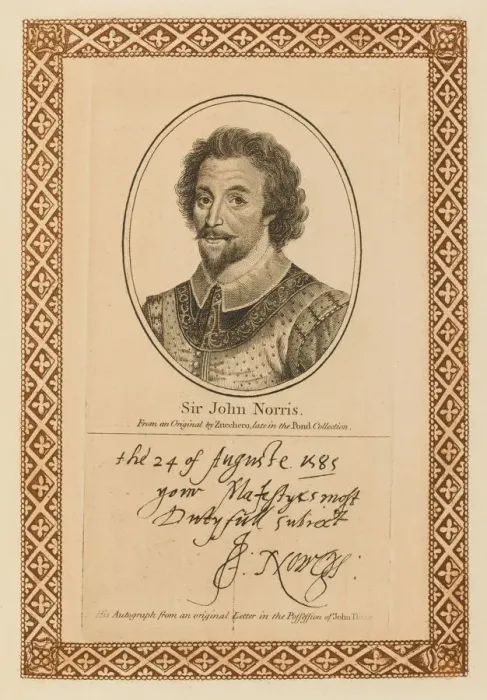 Sir John Norris.
From an Original by Zucchero, late in the Pond Collection.
the 24 of Auguste 1585
your Ma^tes most
Dutyfull subiect
J. Norreys:
His Autograph from an original Letter in the Possession of John